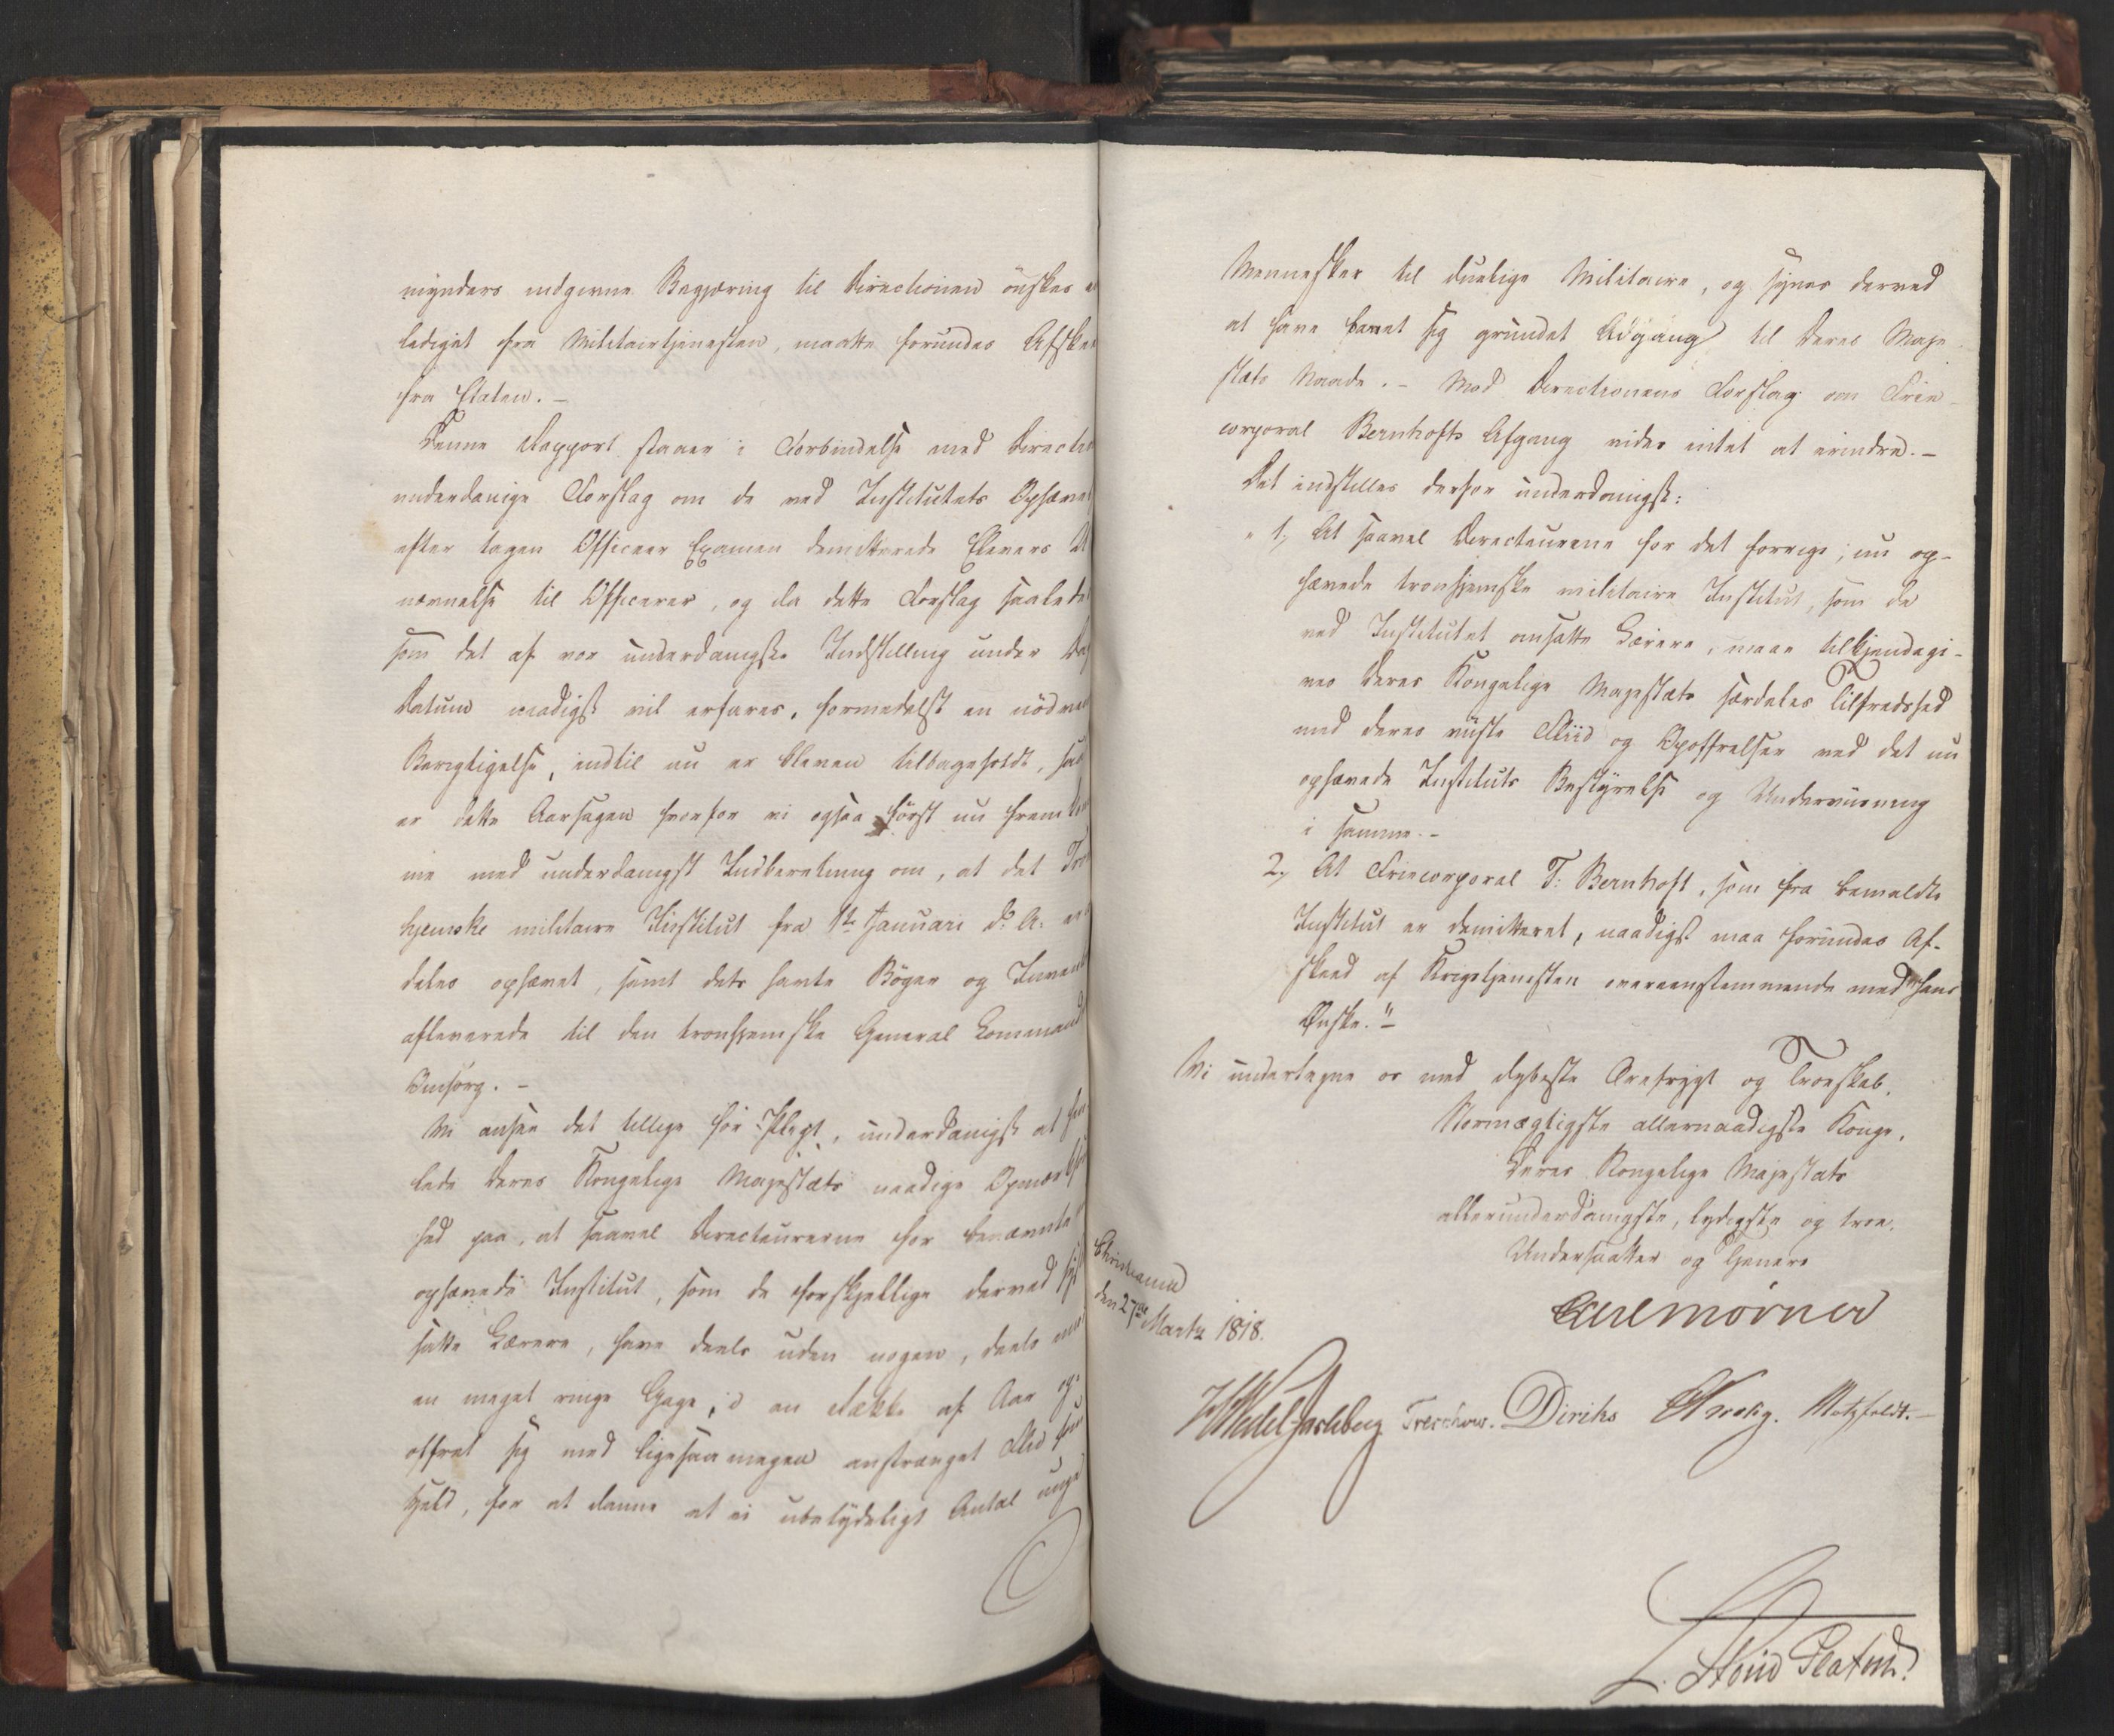 mynders indgivne Begjæring til Directionen önskes e
lediget fra Militairtjenesten, maatte forundes Afske
fra Etaten. –
Denne Rapport staaer i Forbindelse med Directio
underdanige Forslag om de ved Institutets Ophævel
efter tagen Officeer Examen demitterede Elevers U
nævnelse til Officerer, og da dette Forslag saalede
som det af vor underdanigste Indstilling under Da
Datum naadigst vil erfares, formedelst en nödven
Berigtigelse, indtil nu er bleven tilbageholdt, saa
er dette Aarsagen hvorfor vi ogsaa först nu frem
me med underdanigst Indberetning om, at det Tro
hjemske militaire Institut fra 1ste Januari d: A: er
deles ophævet, samt dets havte Böger og Inven
afleverede til den tronhjemske General Command
Omsorg. –
Vi ansee det tillige for Pligt, underdanigst at hen
lede Deres Kongelige Majestæts naadige Opmærk
hed paa, at saavel Directeurerne for benævnte
ophævede Institut, som de forskjellige derved
satte Lærere, have deels uden nogen, deels
en meget ringe Gage, i en Række af Aar op
offret sig med ligesaa megen anstrænget Flid som
Held, for at danne et ei ubetydeligt Antal unge
Mennesker til duelige Militaire, og synes derved
at have banet sig grundet Adgang til Deres Maje
stæts Naade. – Mod Directionens Forslag om Frie
corporal Bernhofts Afgang vides intet at erindre. –
Det indstilles derfor underdanigst:
" 1, At saavel Directeurene for det forrige, nu op-
hævede tronhjemske militaire Institut, som de
ved Institutet ansatte Lærere, maae tilkjendegi-
ves Deres Kongelige Majestæts særdeles Tilfredshed
med deres viiste Fliid og Opoffrelser ved det nu
ophævede Instituts Bestyrelse og Underviisning
i samme. –
2, At Friecorporal T: Bernhoft, som fra bemeldte
Institut er demitteret, naadigst maa forundes Af-
skeed af Krigstjenesten overeensstemmende med hans
Ønske." –
Vi undertegne os med dybeste Ærefrygt og Troeskab.
Stormægtigste allernaadigste Konge,
Deres Kongelige Majestæts
allerunderdanigste, lydigste og troe
Undersaatter og Tjenere
Christiania
den 27de Martz 1818.
Carl Mörner
HWedel Jarlsberg Treschow. Diriks Krohg. Motzfeldt. –
L. Stoud Platou.